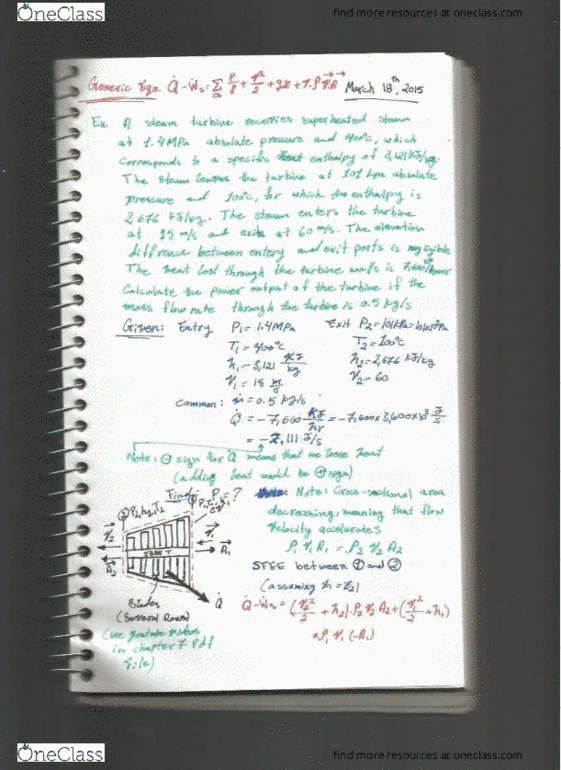 OneClass
find more resources at oneclass.com
Generic Eqn. Q̇ - Ẇs = Σ P/ρ + V²/2 + gz + ρ V⃗.A⃗
March 18th, 2015
Ex. A steam turbine receives superheated steam
at 1.4MPa absolute pressure and 400°C, which
corresponds to a specific enthalpy of 3,121 kJ/kg.
The steam leaves the turbine at 101 kPa absolute
pressure and 100°C, for which the enthalpy is
2,676 kJ/kg. The steam enters the turbine
at 15 m/s and exits at 60 m/s. The elevation
diffrence between entery and exit ports is negligible
The heat lost through the turbine walls is 7,600 kJ/hour
Calculate the power output of the turbine if the
mass flow rate through the turbine is 0.5 kg/s
Given: Entry P₁ = 1.4MPa Exit P₂ = 101kPa
T₁ = 400°C T₂ = 100°C
h₁ = 3,121 kJ/kg h₂ = 2,676 kJ/kg
V₁ = 15 m/s V₂ = 60
Common: ṁ = 0.5 kg/s
Q̇ = -7,600 kJ/hr = -7,600x3,600x10³ J/s
= -2,111 J/s
Note: ⊖ sign for Q means that we loose heat
(adding heat would be ⊕ sign)
Find: P = ?
② P₂, h₂, T₂
①
V⃗₂
A⃗₂
SHAFT
V⃗₁
A⃗₁
Q̇
Blades
(Several Rows)
(see youtube videos
in chapter 7 Pdf
file)
Note: Cross-sectional area
decreasing, meaning that flow
velocity accelerates
ρ₁ V₁ A₁ = ρ₂ V₂ A₂
SFEE between ① and ②
(assuming z₁ = z₂)
Q̇ - Ẇs = (V₂²/2 + h₂).ρ₂ V₂ A₂ + (V₁²/2 + h₁)
x ρ₁ V₁ (-A₁)
OneClass
find more resources at oneclass.com